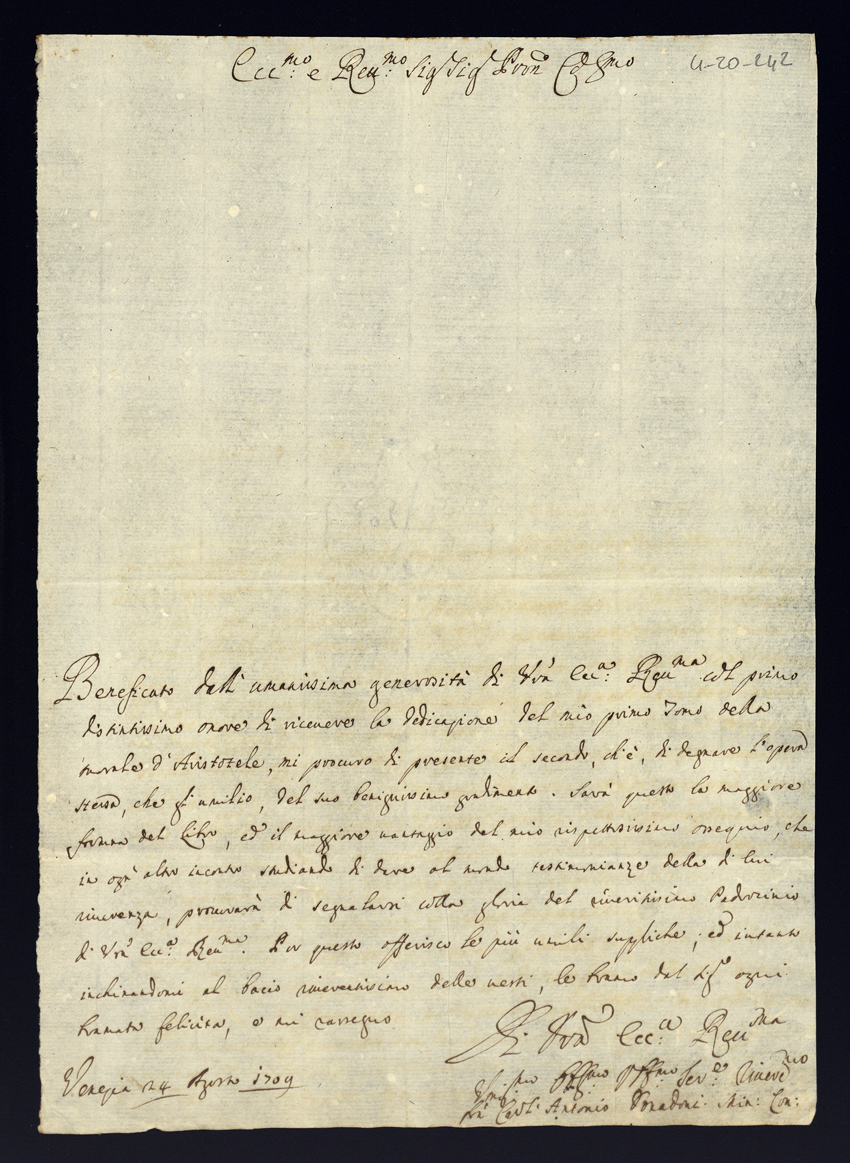 Ecc:mo e Reu:mo Sigr Sigr Pron Colmo
4-20-242
Beneficato dall' umanissima generosità di Vra Ecc:a Reuma col primo
distintissimo onore di ricevere la dedicazione del mio primo Tomo della
morale d'Aristotele, mi procuro di presente il secondo, ch'è, di degnare l'opera
stessa, che gl'umilio, del suo benignissimo gradimento. Sarà questo la maggiore
fortuna del Libro, ed il maggiore vantaggio del mio rispettosissimo ossequio, che
in ogn'altro incontro studiando di dare al mondo testimonianze della di lui
riverenza, procurarà di segnalarsi colla gloria del riveritissimo Padrocinio
di Vra Ecc:a Reuma. Per questo offerisco le più umili suppliche; ed intanto
inchinandomi al bacio riverentissimo delle vesti, le bramo dal Sigr ogni
bramata felicità, e mi rassegno
Di Vra Ecc:a Reuma
Venezia 24 Agosto 1709
Ser:e
Antonio Min: Con: